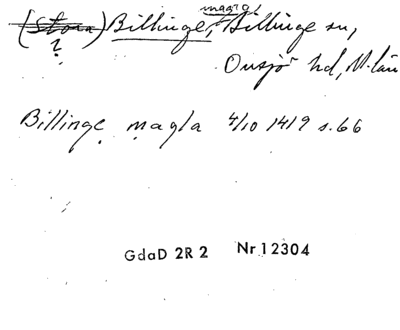 magra
(Stora) Billinge, Billinge sn,
?
Onsjö hd, M. län
Billinge magla 4/10 1419 s. 66
GdaD 2R 2 Nr 12304